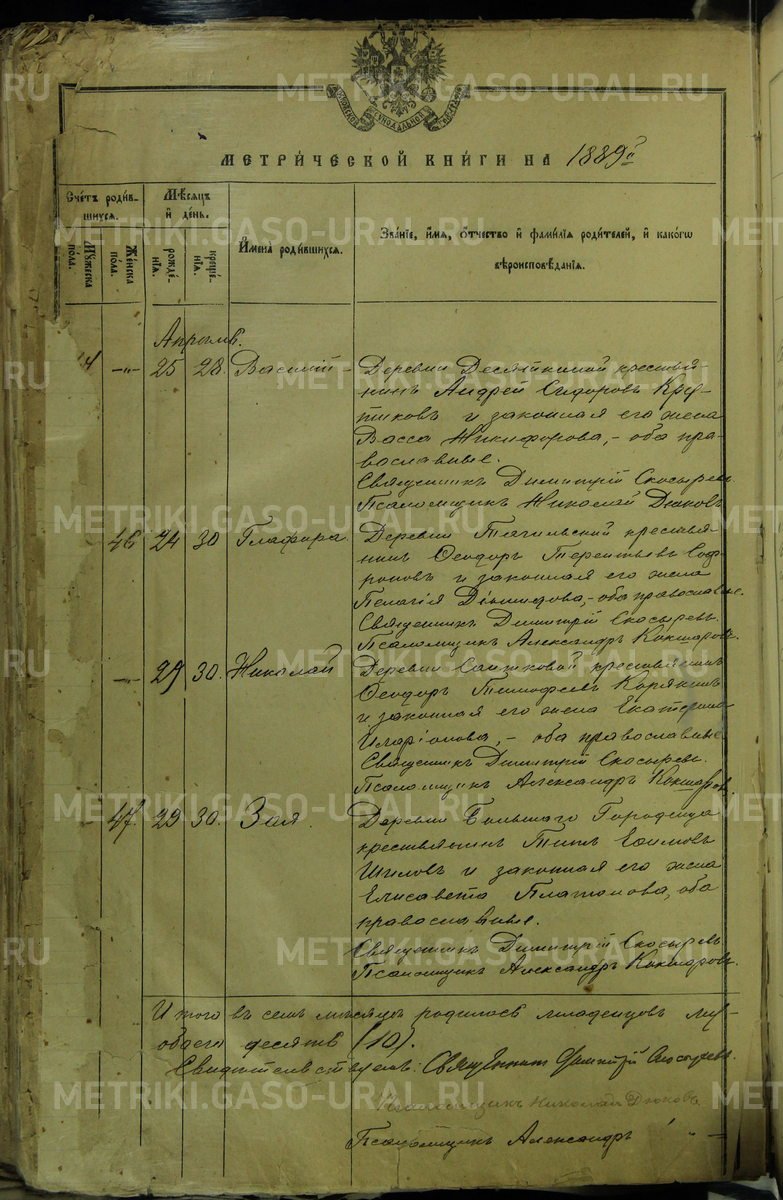 МЕТРИ́ЧЕСКОЙ КНИ́ГИ НА 1889 г̃
Сче́тъ роди́в-
шихся.
Му́жеска
по́ла.
Же́нска
по́ла.
Мѣ́сяцъ
и де́нь.
рожде́-
нія.
креще́-
нія.
И́мена роди́вшихся.
Зва́ніе, и́мя, о́тчество и фами́лія роди́телей, и како́гѡ
вѣроисповѣ́данія.
Апрѣль.
4 —„— 25 28 Василій – Деревни Десяткиной крестья-
нинъ Андрей Сидоровъ Кру-
тиковъ и законная его жена
Васса Никифорова, – оба пра-
вославные.
Священникъ Димитрій Скосыревъ.
Псаломщикъ Николай Дюковъ
46 24 30 Глафира. Деревни Тягильской крестья-
нинъ Ѳеодоръ Терентьевъ Соф-
роновъ и законная его жена
Пелагія Діомидова, – оба православные.
Священникъ Димитрій Скосыревъ.
Псаломщикъ Александръ Кокшаровъ.
—„— 29 30. Николай Деревни крестьянинъ
Ѳеодоръ Тимофеевъ Корякинъ
и законная его жена Екатерина
Иларіонова, – оба православные
Священникъ Димитрій Скосыревъ.
Псаломщикъ Александръ Кокшаровъ.
47. 29 30. Зоя. Деревни Большаго Городища
крестьянинъ Титъ Ефимовъ
Шиловъ и законная его жена
Елисавета Платонова, оба
православные.
Священникъ Димитрій Скосыревъ
Псаломщикъ Александръ Кокшаровъ.
Итого въ семъ мѣсяцѣ родилось младенцовъ
обоего десять (10).
Свидѣтельствуемъ: Священникъ Димитрій Скосыревъ.
Псаломщикъ Николай Дюковъ
Псаломщикъ Александръ
METRIKI.GASO-URAL.RU